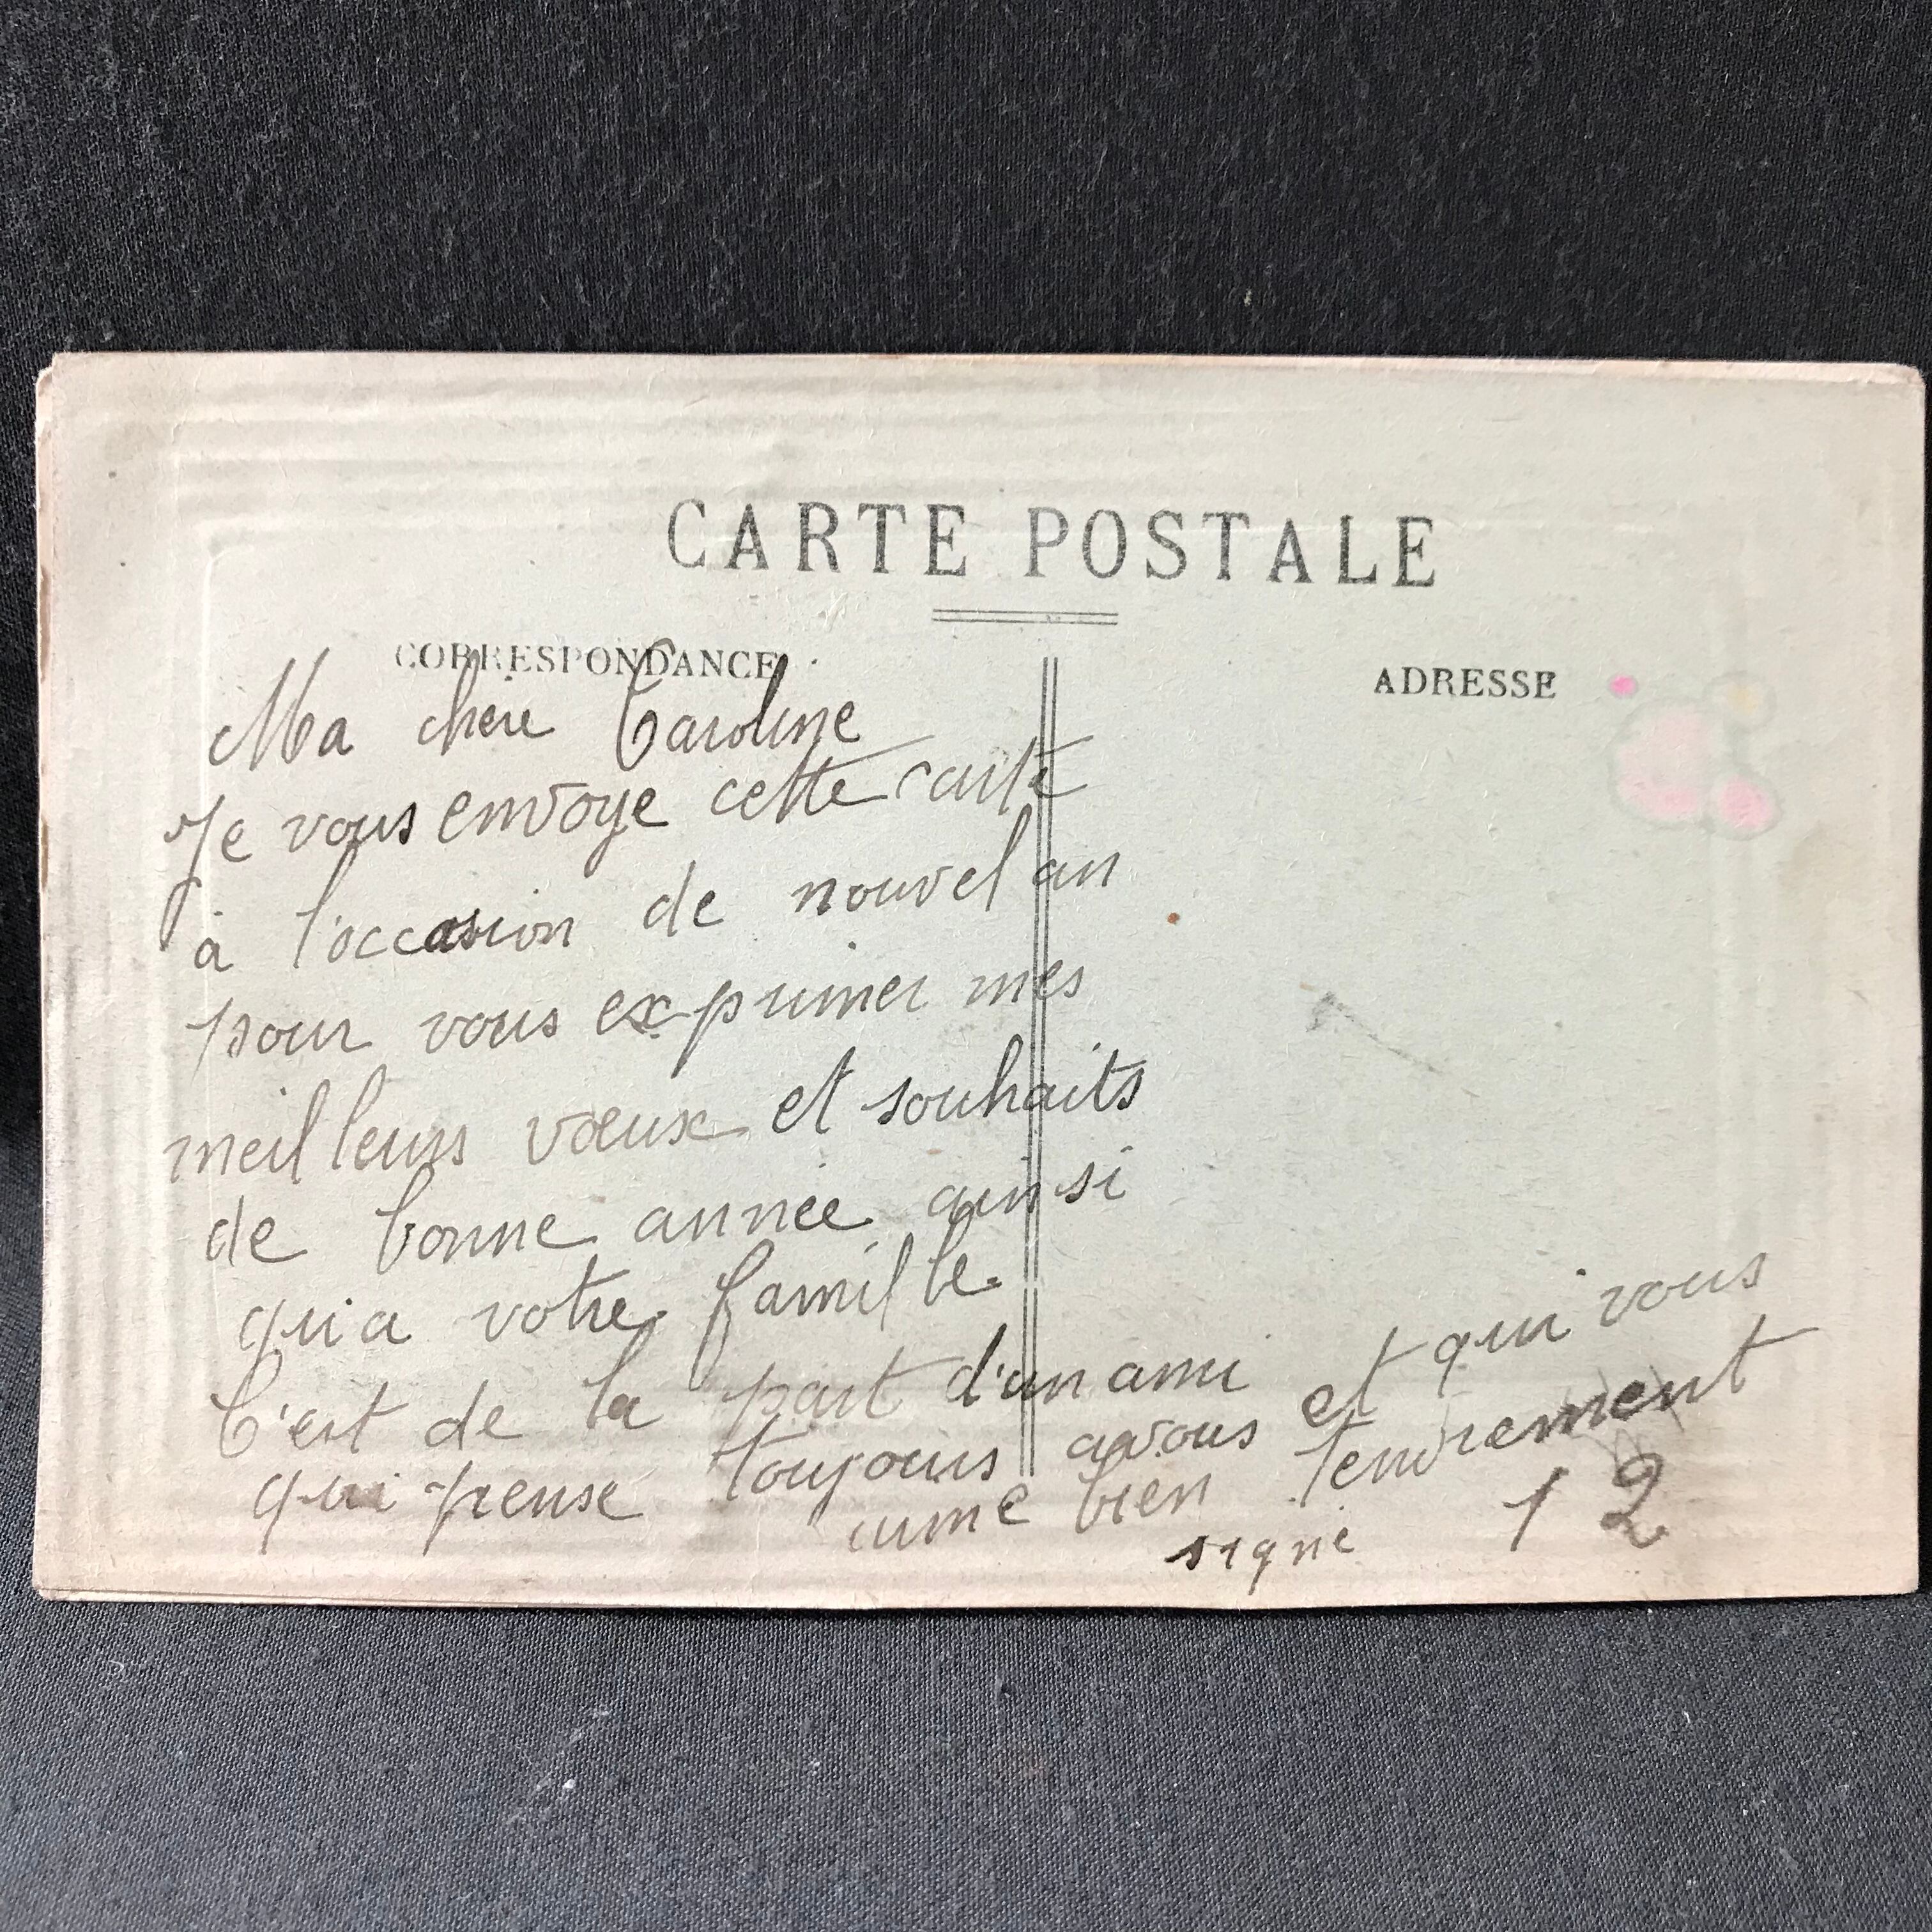 CARTE POSTALE
CORRESPONDANCE
ADRESSE
Ma chère Caroline
Je vous envoye cette carte
à l'occasion de nouvel an
pour vous exprimer mes
meilleurs vœux et souhaits
de bonne année ainsi
qu'a votre famille
C'est de la part d'un ami
qui pense toujours avous et qui vous
aime bien tendrement
signé 1 2